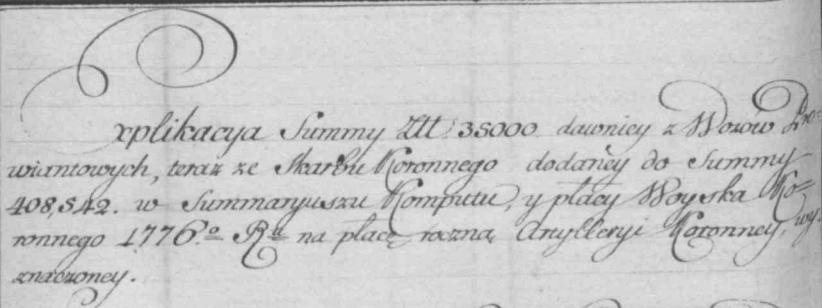 Explikacya Summy Złł: 35000 dawniey z Wozow Pro=
wiantowych, teraz ze Skarbu Koronnego dodaney do Summy
408,542. w Summaryuszu Komputu, y płacy Woyska Ko=
ronnego 1776.º Rᵘ na płacę roczną Artylleryi Koronney, wy=
znaczoney.